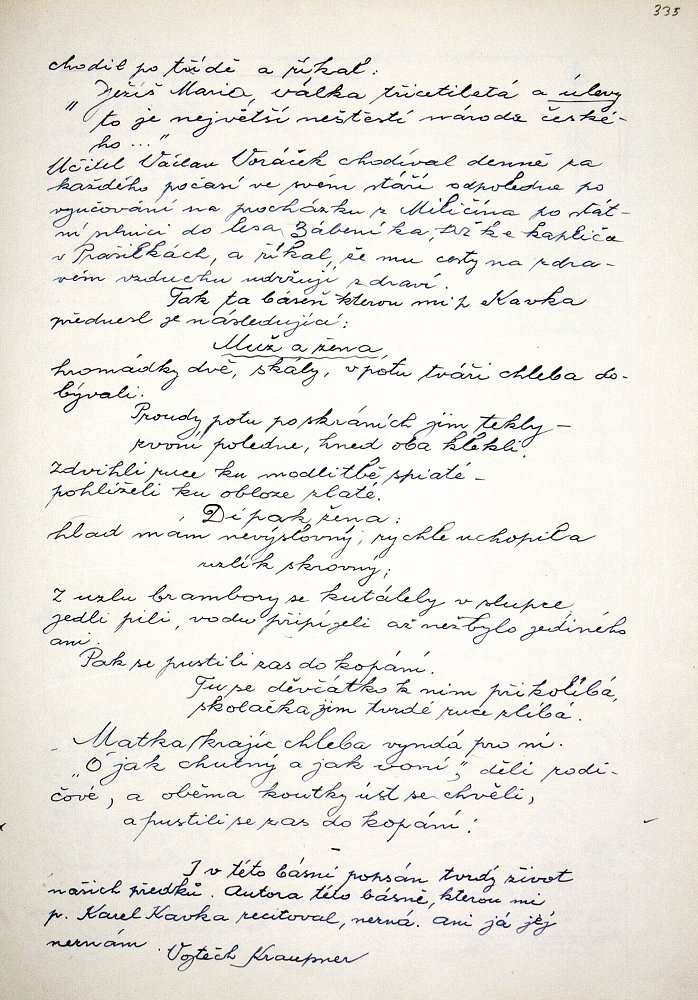 335
chodil po třídě a říkal:
" Ježíš Maria, válka třicetiletá a úlevy
to je největší neštěstí národa české-
ho ... "
Učitel Václav Voráček chodíval denně za
každého počasí ve svém stáří odpoledne po
vyučování na procházku z Miličína po stát-
ní silnici do lesa Zábeníka, též ke kapličce
v Prašilkách, a říkal, že mu cesty na zdra-
vém vzduchu udržují zdraví.
Tak ta báseň kterou mi p. Kavka
přednesl je následující:
Muž a žena
hromádky dvě, skály, v potu tváři chleba do-
bývali.
Proudy potu po skráních jim tekly -
zvoní poledne, hned oba klekli.
Zdvihli ruce ku modlitbě, spiaté -
pohlíželi ku obloze zlaté.
Dí pak žena:
hlad mám nevýslovný, rychle uchopila
uzlík skrovný;
Z uzlu brambory se kutálely v slupce,
jedli pili, vodu připíjeli až nežbylo jediného
ani.
Pak se pustili zas do kopání.
Tu se děvčátko k nim přikolíbá,
školačka jim tvrdé ruce zlíbá.
Matka krajíc chleba vyndá pro ni.
"Ó jak chutný a jak voní," dělí rodi-
čové, a oběma koutky úst se chvěli,
a pustili se zas do kopání!
-
I v této básni popsán tvrdý život
našich předků. Autora této básně, kterou mi
p. Karel Kavka recitoval, nezná. Ani já jej
neznám.
Vojtěch Kraupner